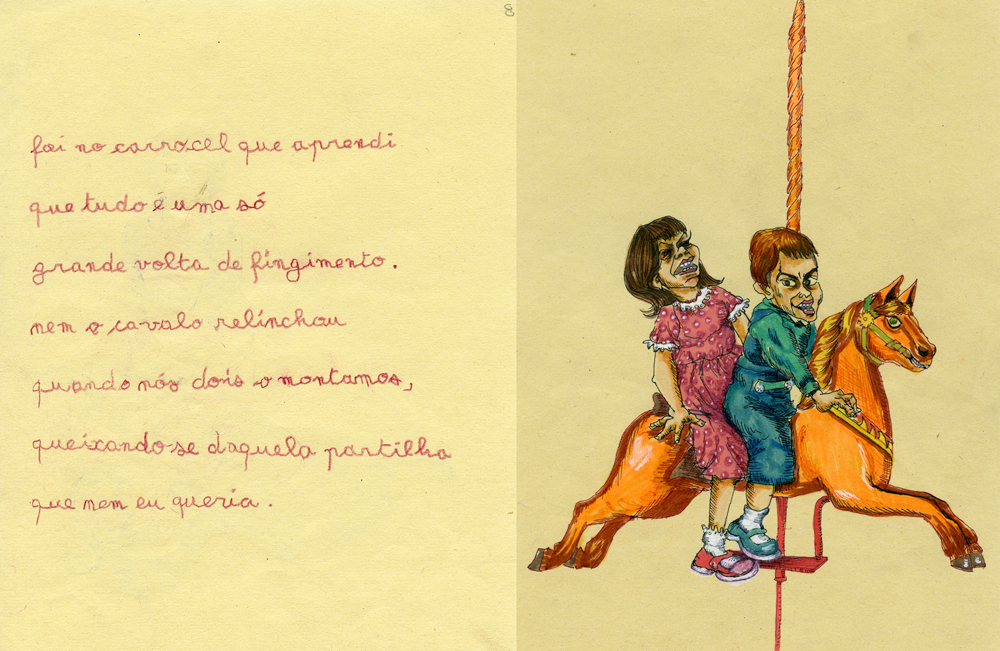 8
foi no carrocel que aprendi
que tudo é uma só
grande volta de fingimento.
nem o cavalo relinchou
quando nós dois o montamos,
queixando-se daquela partilha
que nem eu queria.